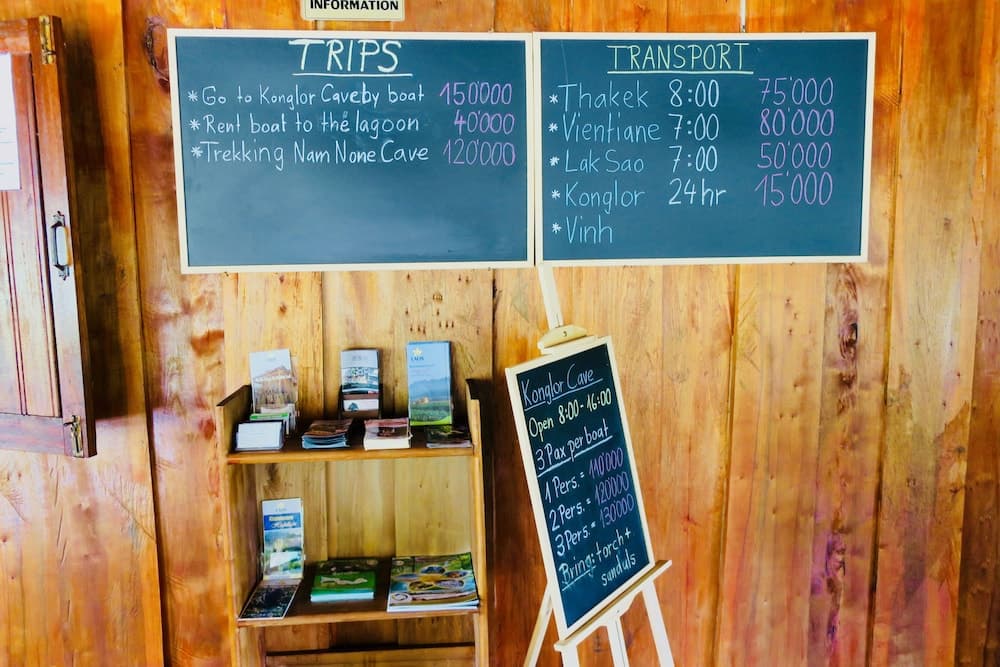 INFORMATION
TRIPS
* Go to Konglor Cave by boat 150'000
* Rent boat to the lagoon 40'000
* Trekking Nam None Cave 120'000
TRANSPORT
* Thakek 8:00 75'000
* Vientiane 7:00 80'000
* Lak Sao 7:00 50'000
* Konglor 24hr 15'000
* Vinh
Konglor Cave
Open 8:00-16:00
3 Pax per boat
1 Pers. = 110'000
2 Pers. = 120'000
3 Pers. = 130'000
Bring: torch +
sanduls
LAOS